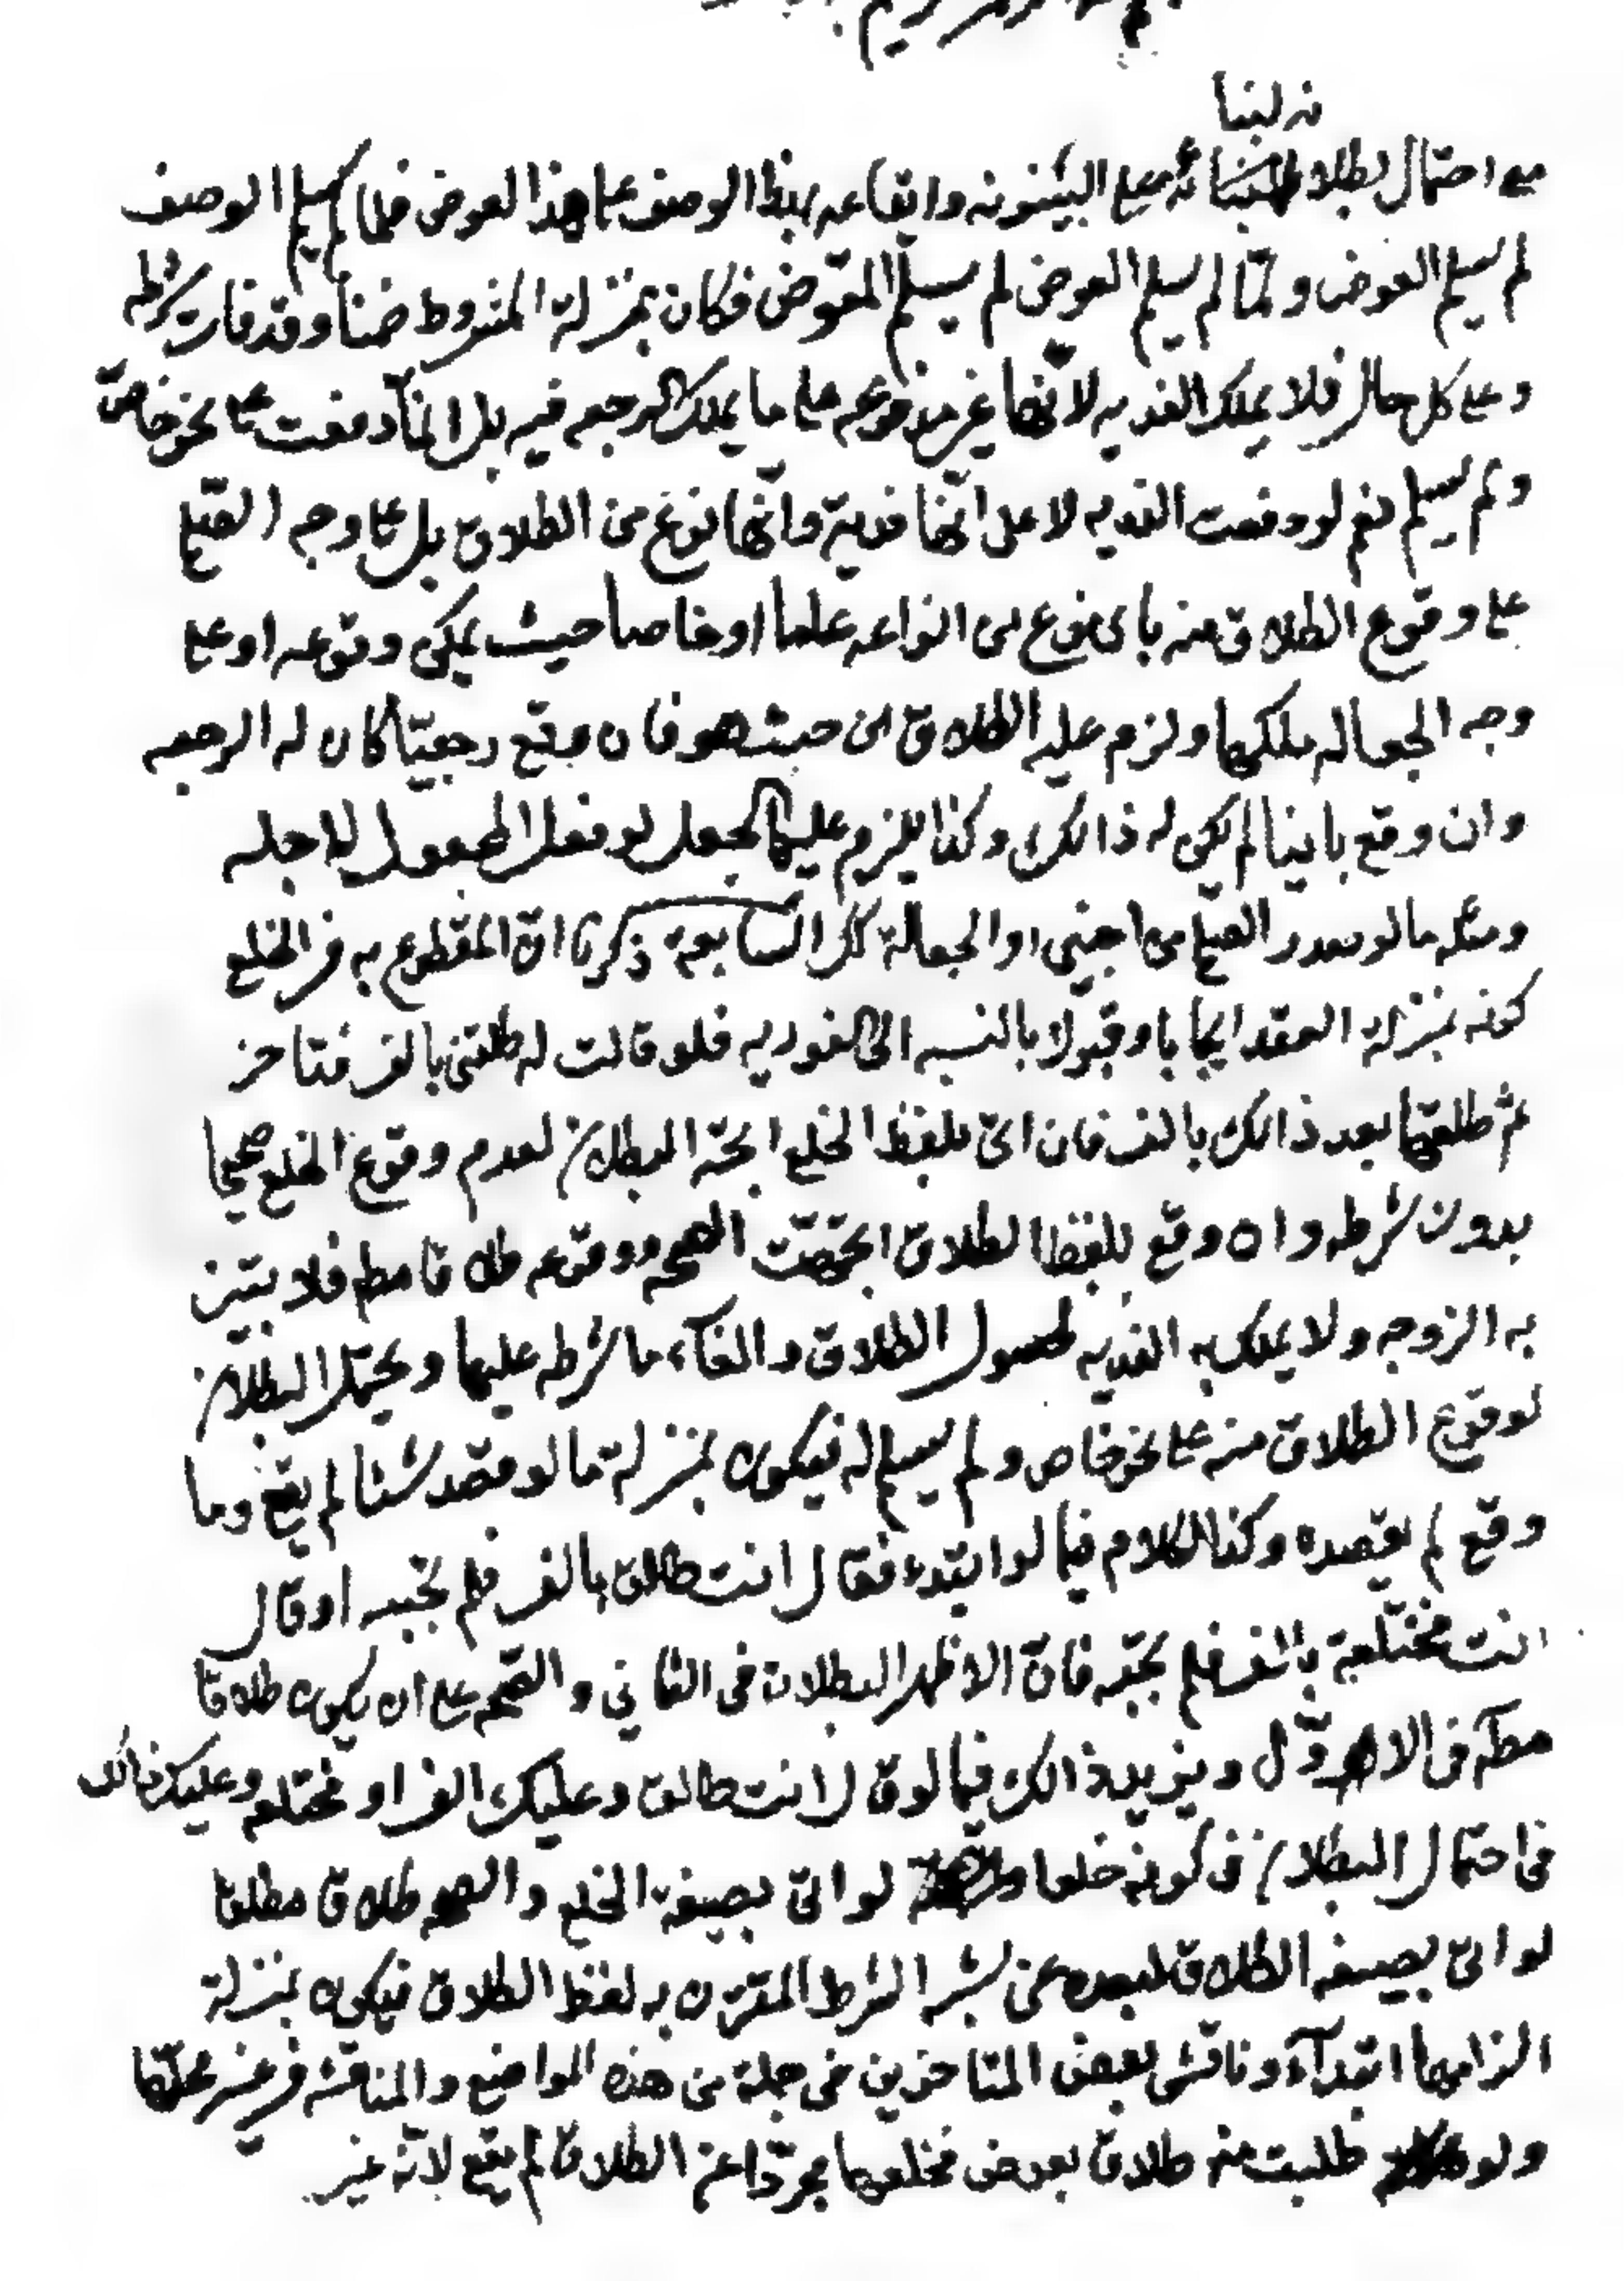 مع احتمال بطلانه لبنائه مع البينونه وايقاعه بهذا الوصف على هذا العوض فلما لم يسلم الوصف
لم يسلم العوض ولمّا لم يسلم العوض لم يسلم المعوّض فكان بمنزلة المشروط ضمنا وقد فات شرطه
وعلى كل حال فلا يملك الفديه لانّها غير مدفوعه على ما يملك الرجعه فيه بل انمّا دفعت على نحو خاصّ
ولم يسلم نعم لو دفعت الفديه لا على انّها فدية وانّها نوع من الطلاق بل على وجه الصّلح
على وقوع الطلاق منه باى نوع من انواعه عاما او خاصا حيث يمكن وقوعه او على
وجه الجعاله ملكها ولزم عليه الطلاق من حيث هو فان وقع رجعيّا كان له الرجعه
وان وقع باينا لم يكن له ذالك وكذا يلزم عليها الجعل لو فعل المجعول لاجله
ومثله ما لو صدر الصلح من اجنبى او الجعالة السابعة ذكرنا انّ المقطوع به فى الخلع
كونه بمنزله العقد ايجابا وقبولا بالنسبه الى الفوريه فلو قالت له طلقنى بالف فتاخر
ثم طلقها بعد ذالك بالف فان اتى بلفظ الخلع اتجه البطلان لعدم وقوع الخلع صحيحا
بدون شرطه وان وقع بلفظ الطلاق اتجهت الصحه ووقوعه طلاقا مط فلا يتبين
به الزوجه ولا يملك به الفديه لحصول الطلاق والغآء ما شرطه عليها ويحتمل البطلان
لوقوع الطلاق منه على نحو خاص ولم يسلم له فيكون بمنزلة ما لو قصد شئا لم يقع وما
وقع لم يقصده وكذا الكلام فيما لو ابتدء فقال انت طالق بالف فلم تجبه او قال
انت مختلعة بالف فلم تجبه فانّ الاظهر البطلان فى الثانى والصحه على ان يكون طلاقا
مطلقا فى الاوّل ويزيد ذالك فيما لو قال انت طالق وعليك الف او مختلعه وعليك ذالك
فى احتمال البطلان فى كونه خلعا لو اتى بصيغة الخلع والصحه طلاقا مطلقا
لو اتى بصيغه الطلاق لبعده عن الشرط المقترن به لفظ الطلاق فيكون بمنزلة
الزامها ابتدآء وناقش بعض المتاخرين فى جملة من هذه المواضع والمناقشه فى غير محلّها
ولو طلبت منه طلاق بعوض فخلعها مجرّدا عن الطلاق لم يقع لانّه غير